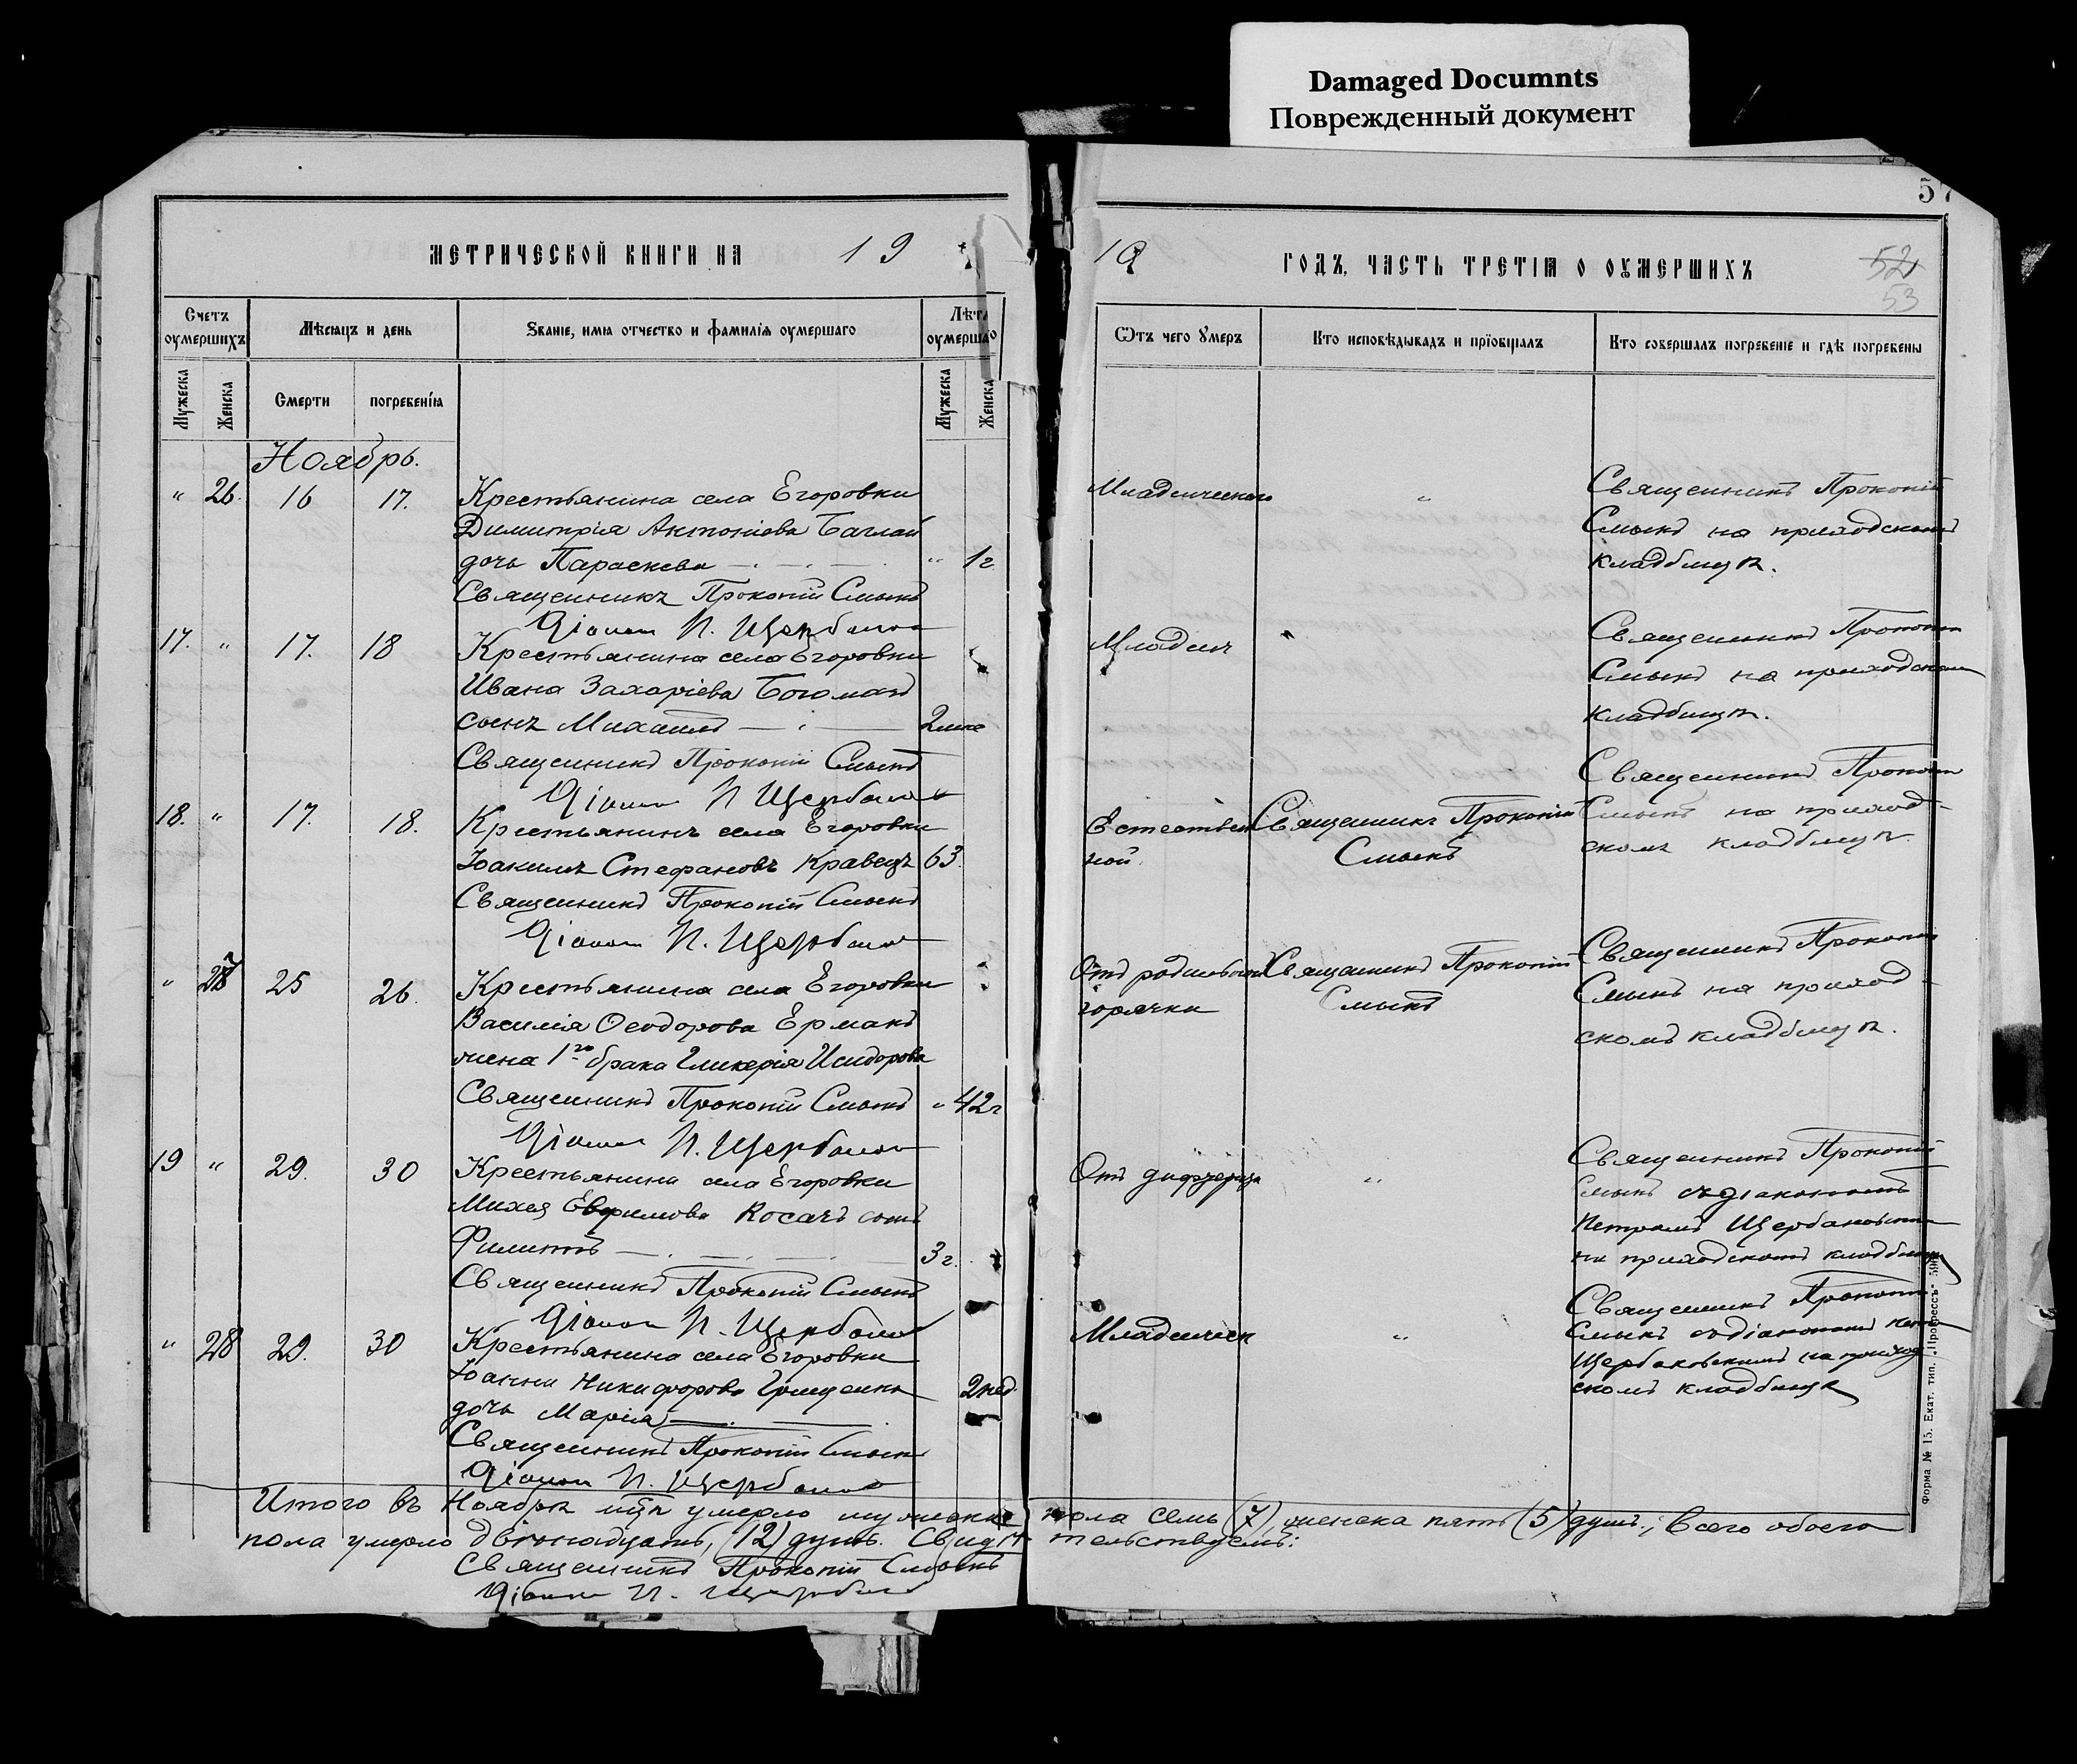 Damaged Documnts
Поврежденный документ
57
МЕТРИЧЕСКОЙ КНИГИ НА 19
Счетъ оумершихъ
Мѣсяцъ и день
Званіе, имя отчество и фамилія оумершаго
Лѣта оумершаго
Мужеска
Женска
Смерти
погребенія
Мужеска
Женска
Ноябрь.
" 26. 16 17. Крестьянина села Егоровки
Димитрія Антоніева Баглай
дочь Параскева " 1 г.
Священникъ Прокопій Смыкъ
Діаконъ П. Щербаков
17. " 17. 18 Крестьянина села Егоровки
Ивана Захаріева
сынъ Михаилъ
Священникъ Прокопій Смыкъ
Діаконъ П Щербаков
18. " 17. 18. Крестьянинъ села Егоровки
Іоакимъ Стефановъ Кравецъ 63.
Священникъ Прокопій Смыкъ
Діаконъ П. Щербаков
" 27 25 26. Крестьянина села Егоровки
Василія Ѳеодорова Ермакъ
жена 1го брака Гликерія Исидорова
Священникъ Прокопій Смыкъ " 42 г
Діаконъ П. Щербаков
19 " 29. 30 Крестьянина села Егоровки
Михея Евфимова Косачъ сынъ
Филиппъ 3 г.
Священникъ Прокопій Смыкъ
Діаконъ П. Щербаков
" 28 29. 30 Крестьянина села Егоровки
Іоанна Никифорова Грищенка 2 нед.
дочь Марія
Священникъ Прокопій Смыкъ
Діаконъ П. Щербаков
Итого въ Ноябрѣ мцѣ умерло мужеска
пола умерло двѣнадцать (12) душъ. Свидѣ-
Священникъ Прокопій Смыкъ
Діаконъ П. Щербаков
10 ГОДЪ, ЧАСТЬ ТРЕТІЯ О ОУМЕРШИХЪ
52
53
Ѿтъ чего Умеръ
Кто исповѣдывалъ и пріобщалъ
Кто совершалъ погребеніе и гдѣ погребены
Младенческого " Священникъ Прокопій
Смыкъ на приходскомъ
кладбищѣ.
Младенч " Священникъ Прокопій
Смыкъ на приходском
кладбищѣ.
Естествен Священникъ Прокопій Священникъ Прокопій
ной. Смыкъ Смыкъ на приход-
скомъ кладбищѣ.
Отъ родильной Священникъ Прокопій Священникъ Прокопій
горячки Смыкъ Смыкъ на приход-
скомъ кладбищѣ.
Отъ дифтерита " Священникъ Прокопій
Смыкъ съ діакономъ
Петромъ
на приходскомъ кладбищѣ
Младенческ " Священникъ Прокопій
Смыкъ съ діакономъ
на приход
скомъ кладбищѣ
пола семь (7), женска пять (5) душъ; Всего обоего
тельствуемъ:
Форма № 15. Екат. тип. „Прогрессъ"